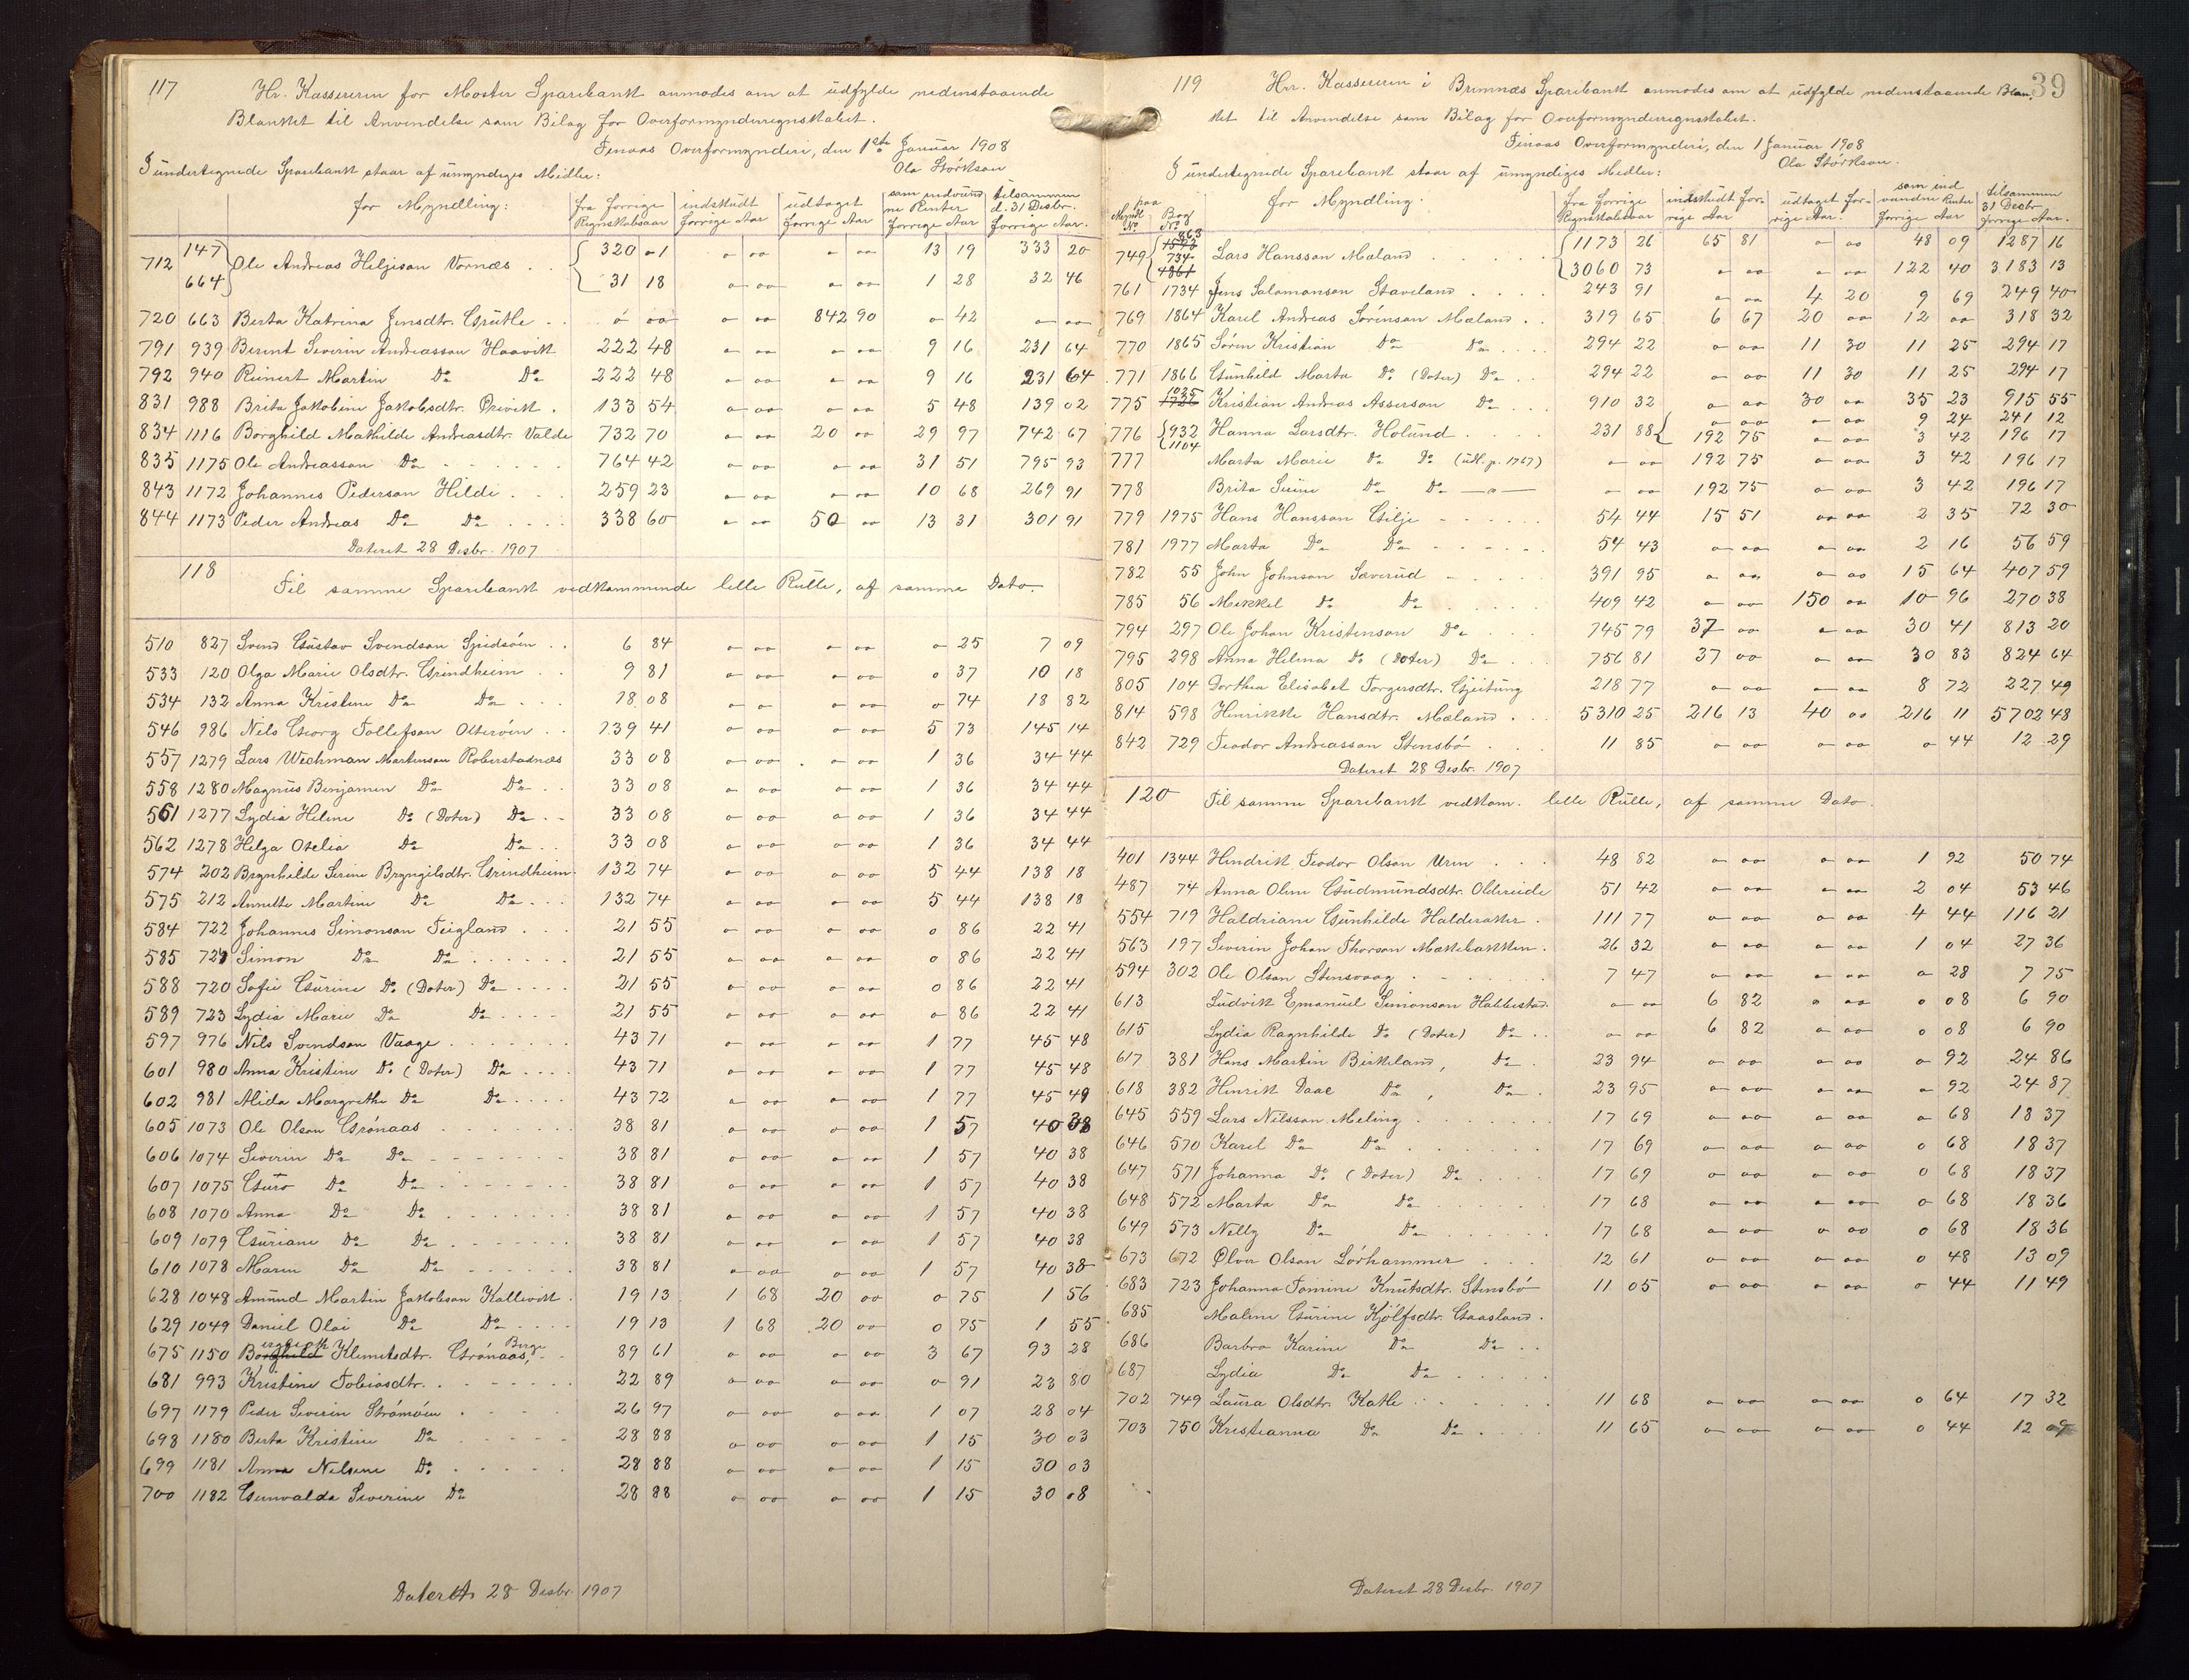 117 Hr. Kassereren for Moster Sparebank anmodes om at udfylde nedenstaaende
Blanket til Anvendelse som Bilag for Overformynderregnskabet.
Finaas Overformynderi, den 1ste Januar 1908
Ola Størkson
I undertegnede Sparebank staar af umyndiges Midler:
for Myndling: fra forrige Regnskabsaar indskudt forrige Aar udtaget forrige Aar som indvundne Renter forrige Aar tilsammen d. 31 Desbr. forrige Aar.
712 147 Ole Andreas Heljeson Vornæs . . 320 01 0 00 0 00 13 19 333 20
664 31 18 0 00 0 00 1 28 32 46
720 663 Berta Katrina Jensdtr. Grütle . . 0 00 0 00 842 90 0 42 0 00
791 939 Berent Severin Andreasson Haavik 222 48 0 00 0 00 9 16 231 64
792 940 Reinert Martin Do Do 222 48 0 00 0 00 9 16 231 64
831 988 Brita Jakobine Jakobsdtr. Økrevik . 133 54 0 00 0 00 5 48 139 02
834 1116 Borghild Mathilde Andreasdtr. Valde 732 70 0 00 20 00 29 97 742 67
835 1175 Ole Andreasson Do 764 42 0 00 0 00 31 51 795 93
843 1172 Johannes Pederson Hilde . . . 259 23 0 00 0 00 10 68 269 91
844 1173 Peder Andreas Do Do . . . . 338 60 0 00 50 00 13 31 301 91
Dateret 28 Desbr. 1907
118 Til samme Sparebank vedkommende lille Rulle, af samme Dato.
510 827 Svend Gustav Svendson Spidsøen . . 6 84 0 00 0 00 0 25 7 09
533 120 Olga Marie Olsdtr. Grindheim . . 9 81 0 00 0 00 0 37 10 18
534 132 Anna Kristine Do Do . . . 18 08 0 00 0 00 0 74 18 82
546 986 Nils Georg Tollefson Olterøen . . 139 41 0 00 0 00 5 73 145 14
557 1279 Lars Wechman Martenson Roberstadnæs 33 08 0 00 0 00 1 36 34 44
558 1280 Magnus Benjamin Do Do . . 33 08 0 00 0 00 1 36 34 44
561 1277 Lydia Helene Do (Doter) Do . . 33 08 0 00 0 00 1 36 34 44
562 1278 Helga Otelia Do Do . . 33 08 0 00 0 00 1 36 34 44
574 202 Brynhilde Serine Bryngilsdtr. Grindheim. 132 74 0 00 0 00 5 44 138 18
575 212 Annette Martine Do Do . . . 132 74 0 00 0 00 5 44 138 18
584 722 Johannes Simonson Teigland . . . 21 55 0 00 0 00 0 86 22 41
585 721 Simon Do Do . . . . . . 21 55 0 00 0 00 0 86 22 41
588 720 Sofie Gurine Do (Doter) Do . . . . 21 55 0 00 0 00 0 86 22 41
589 723 Lydia Marie Do Do . . . . 21 55 0 00 0 00 0 86 22 41
597 976 Nils Svendson Vaage . . . . . . . 43 71 0 00 0 00 1 77 45 48
601 980 Anna Kristine Do (Doter) Do . . . . 43 71 0 00 0 00 1 77 45 48
602 981 Alida Margrethe Do Do . . . . 43 72 0 00 0 00 1 77 45 49
605 1073 Ole Olson Grønaas . . . . . . . 38 81 0 00 0 00 1 57 40 38
606 1074 Severin Do Do . . . . . . . 38 81 0 00 0 00 1 57 40 38
607 1075 Guro Do Do . . . . . . . 38 81 0 00 0 00 1 57 40 38
608 1070 Anna Do Do . . . . . . . 38 81 0 00 0 00 1 57 40 38
609 1079 Guriane Do Do . . . . . . 38 81 0 00 0 00 1 57 40 38
610 1078 Maren Do Do . . . . . . 38 81 0 00 0 00 1 57 40 38
628 1048 Amund Martin Jakobson Kallevik . 19 13 1 68 20 00 0 75 1 56
629 1049 Daniel Olai Do Do . . . . 19 13 1 68 20 00 0 75 1 55
675 1150 Borghild Klemitsdtr. Grønaas, Berge 89 61 0 00 0 00 3 67 93 28
681 993 Kristine Tobiasdtr. . . . . . . . 22 89 0 00 0 00 0 91 23 80
697 1179 Peder Severin Strømøen . . . . 26 97 0 00 0 00 1 07 28 04
698 1180 Berta Kristine Do . . . . . 28 88 0 00 0 00 1 15 30 03
699 1181 Anna Nilsine Do . . . . . 28 88 0 00 0 00 1 15 30 03
700 1182 Gunvalda Severine Do 28 88 0 00 0 00 1 15 30 08
Dateret 28 Desbr. 1907
39
119 Hrr. Kassereren i Bremnæs Sparebank anmodes om at udfylde nedenstaaende Blan-
ket til Anvendelse som Bilag for Overformynderregnskabet.
Finaas Overformynderi, den 1 Januar 1908
Ola Størkson.
I undertegnede Sparebank staar af umyndiges Midler:
Myndl. No paa Bog No for Myndling. fra forrige Regnskabsaar indskudt forrige Aar udtaget forrige Aar. som indvundne Renter forrige Aar tilsammen 31 Desbr. forrige Aar.
749 863 1593 734 4861 Lars Hansson Mæland . . . . . 1173 26 65 81 0 00 48 09 1287 16
3060 73 0 00 0 00 122 40 3183 13
761 1734 Jens Salomonson Staveland . . . . 243 91 0 00 4 20 9 69 249 40
769 1864 Karel Andreas Sørenson Mæland . . 319 65 6 67 20 00 12 00 318 32
770 1865 Søren Kristian Do Do . . . . 294 22 0 00 11 30 11 25 294 17
771 1866 Gunhild Marta Do (Doter) Do . . 294 22 0 00 11 30 11 25 294 17
775 1935 Kristian Andreas Asserson Do . . . 910 32 0 00 30 00 35 23 915 55
776 932 Hanna Larsdtr. Holund . . . . 231 88 0 00 0 00 9 24 241 12
1104 192 75 0 00 3 42 196 17
777 Marta Marie Do Do (udl. p. 1767) 0 00 192 75 0 00 3 42 196 17
778 Brita Do Do —o— 0 00 192 75 0 00 3 42 196 17
779 1975 Hans Hansson Gilje . . . . . . 54 44 15 51 00 00 2 35 72 30
781 1977 Marta Do Do . . . . . . 54 43 0 00 0 00 2 16 56 59
782 55 John Johnson Sæverud . . . . . 391 95 0 00 0 00 15 64 407 59
785 56 Mikkel Do Do . . . . . 409 42 0 00 150 00 10 96 270 38
794 297 Ole Johan Kristenson Do . . . 745 79 37 00 0 00 30 41 813 20
795 298 Anna Helena Do (Doter) Do . . . 756 81 37 00 0 00 30 83 824 64
805 104 Dorthea Elisabet Torgersdtr. Gjeitung 218 77 0 00 0 00 8 72 227 49
814 598 Henrikke Hansdtr. Mæland . . . 5310 25 216 13 40 00 216 11 5702 48
842 729 Teodor Andreasson Stensbø . . . 11 85 0 00 0 00 0 44 12 29
Dateret 28 Desbr. 1907
120 Til samme Sparebank vedkom. lille Rulle, af samme Dato.
401 1344 Hendrik Teodor Olson Uren . . . 48 82 0 00 0 00 1 92 50 74
487 74 Anna Oline Gudmundsdtr. Oldereide 51 42 0 00 0 00 2 04 53 46
554 719 Haldriane Gunhilde Halderaker . 111 77 0 00 0 00 4 44 116 21
563 197 Severin Johan Thorson Mækebakken . 26 32 0 00 0 00 1 04 27 36
594 302 Ole Olson Stensvaag . . . . . 7 47 0 00 0 00 0 28 7 75
613 Ludvik Emanuel Simonson Habbestad. 0 00 6 82 0 00 0 08 6 90
615 Lydia Ragnhilde Do (Doter) Do . . 0 00 6 82 0 00 0 08 6 90
617 381 Hans Martin Birkeland, Do . 23 94 0 00 0 00 0 92 24 86
618 382 Henrik Daae Do , Do . 23 95 0 00 0 00 0 92 24 87
645 559 Lars Nilsson Meling . . . . . . . 17 69 0 00 0 00 0 68 18 37
646 570 Karel Do Do . . . . . . . 17 69 0 00 0 00 0 68 18 37
647 571 Johanna Do (Doter) Do . . . . 17 69 0 00 0 00 0 68 18 37
648 572 Marta Do Do . . . . . . 17 68 0 00 0 00 0 68 18 36
649 573 Nelly Do Do . . . . . . 17 68 0 00 0 00 0 68 18 36
673 672 Ølver Olson Lørhammer . . . 12 61 0 00 0 00 0 48 13 09
683 723 Johanna Tomine Knutsdtr. Stensbø 11 05 0 00 0 00 0 44 11 49
685 Maline Gurine Kjølfsdtr. Gaasland .
686 Barbro Karine Do Do . .
687 Lydia Do Do . . . . .
702 749 Laura Olsdtr. Katle . . . . . . 11 68 0 00 0 00 0 64 17 32
703 750 Kristianna Do Do . . . . 11 65 0 00 0 00 0 44 12 09
Dateret 28 Desbr. 1907